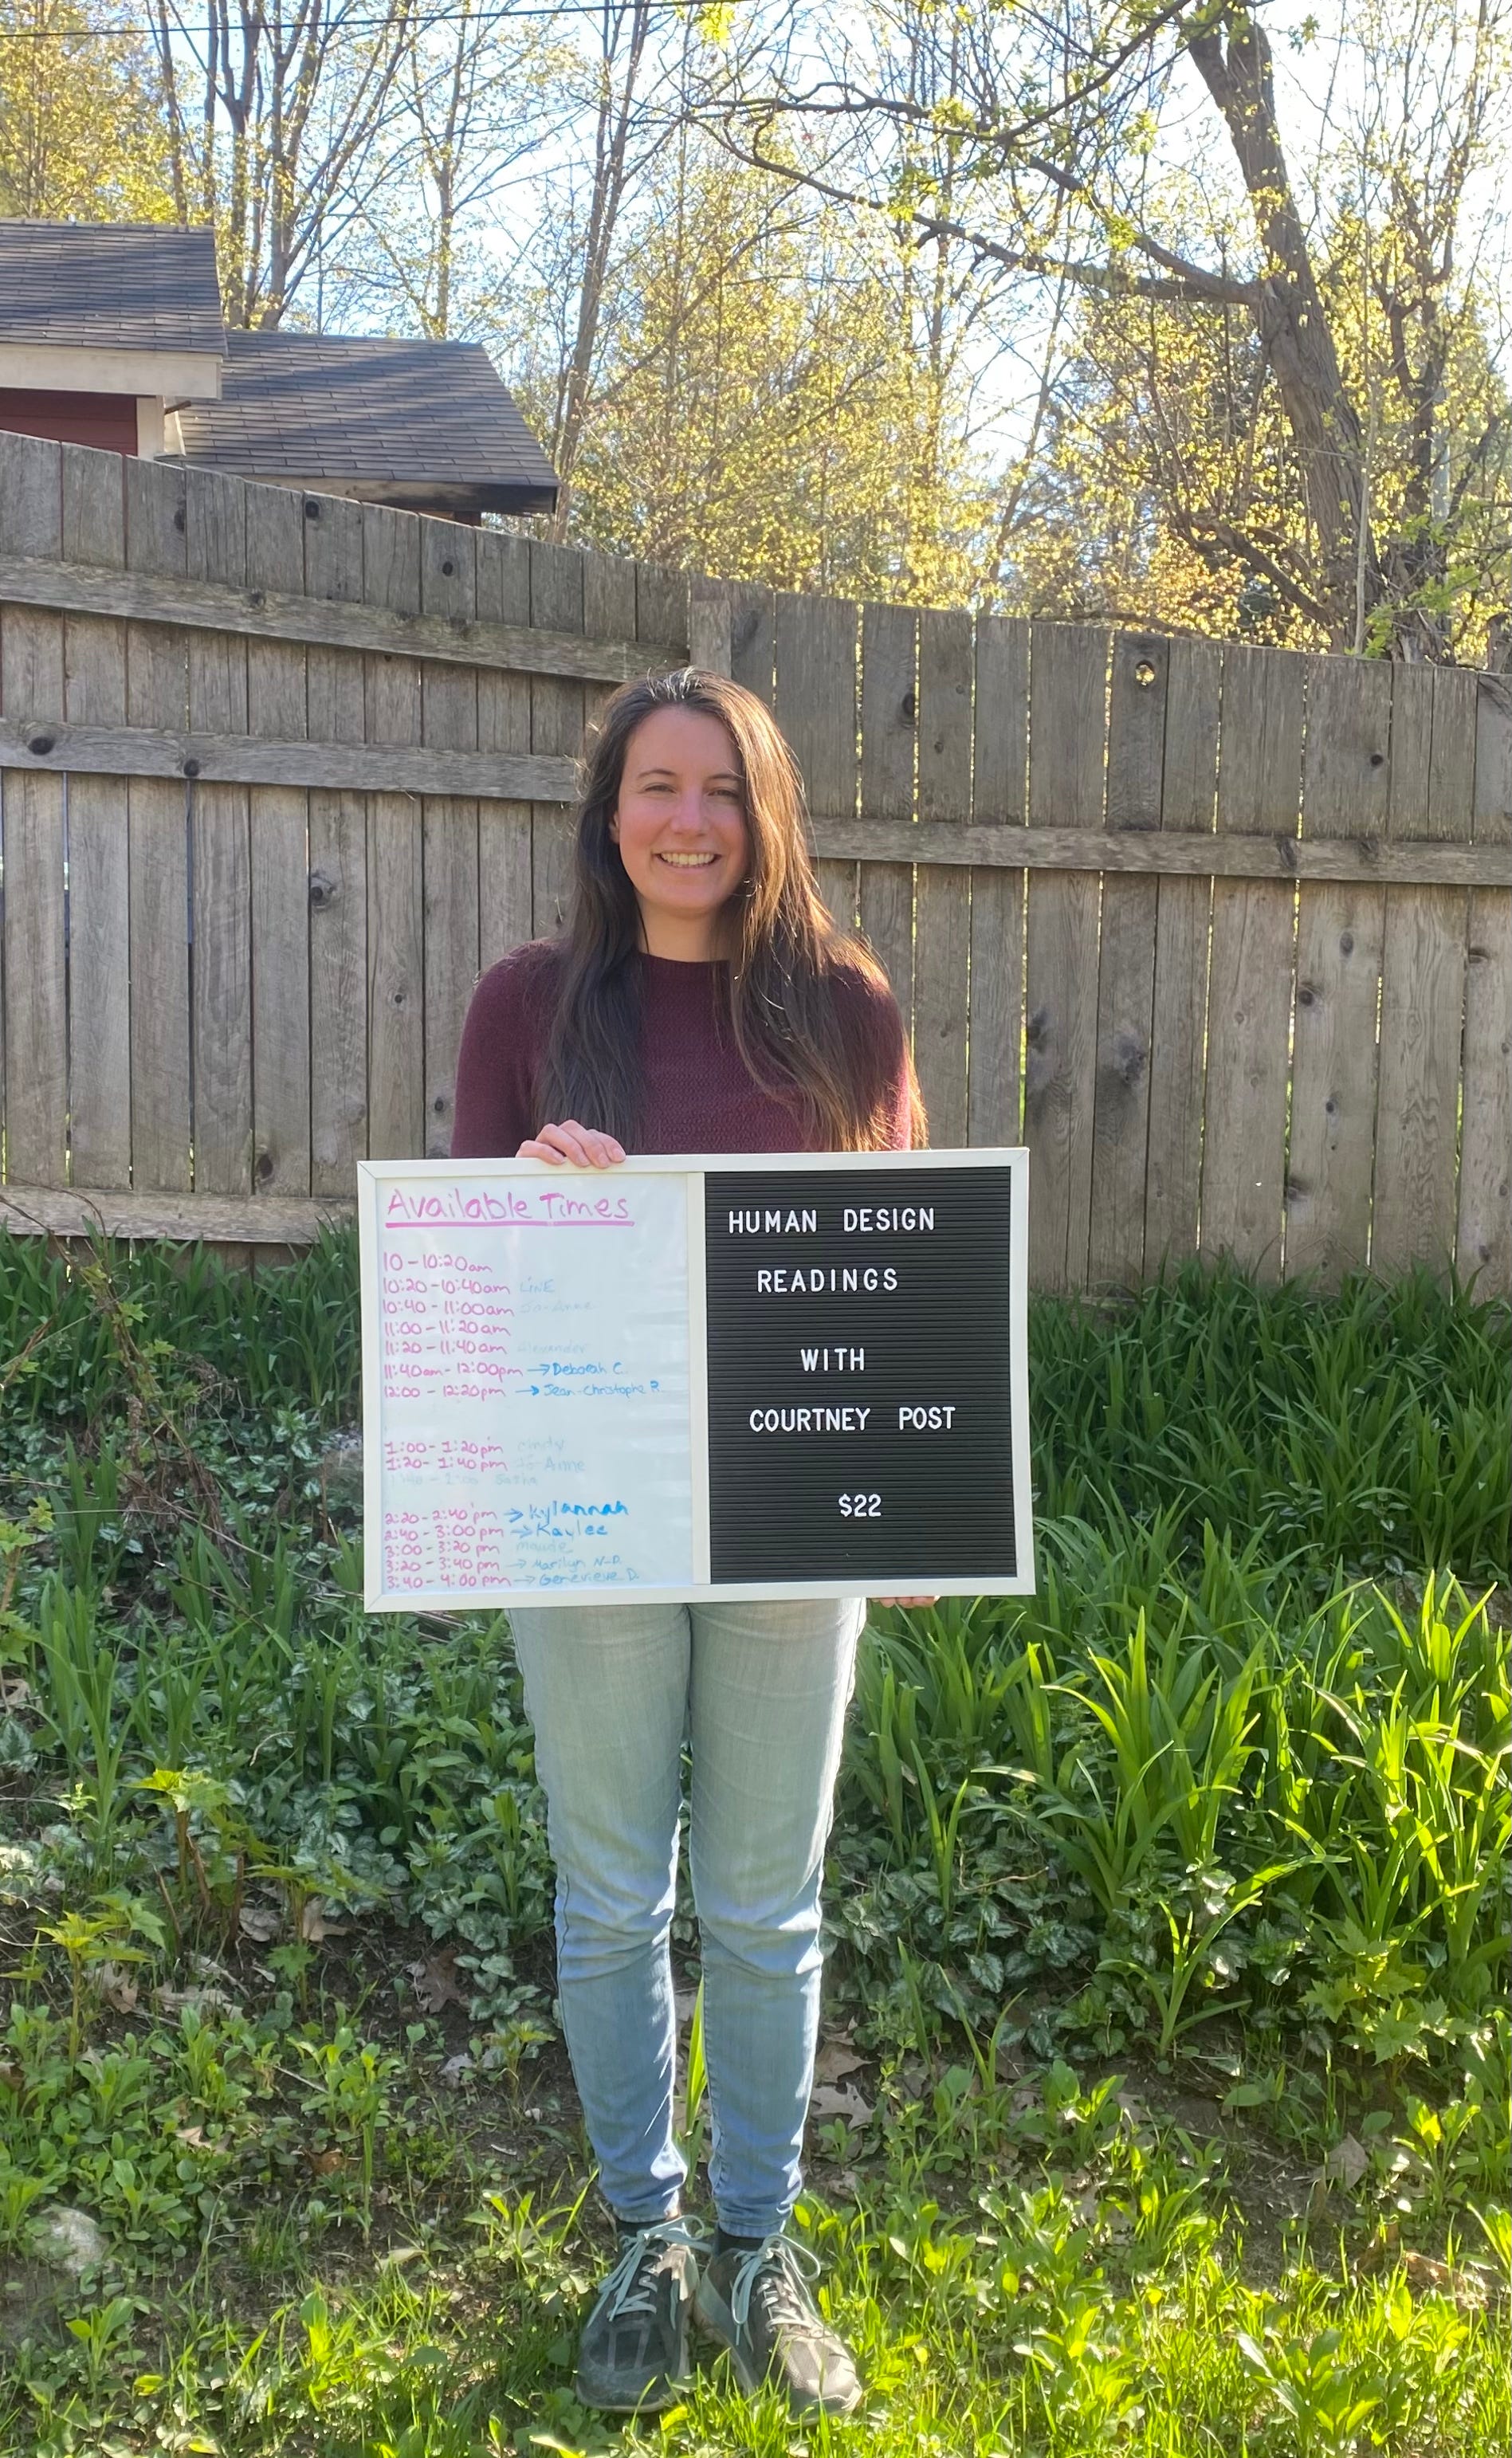 Available Times
10 - 10:20am
10:20 - 10:40am LINE
10:40 - 11:00am
11:00 - 11:20am
11:20 - 11:40am Alexander
11:40am - 12:00pm → Deborah C.
12:00 - 12:20pm → Jean-Christophe P.
1:00 - 1:20pm Cindy
1:20 - 1:40pm Jo-Anne
Sasha
2:20 - 2:40pm → Kylannah
2:40 - 3:00pm → Kaylee
3:00 - 3:20pm Maude
3:20 - 3:40pm → Marilyn N-D.
3:40 - 4:00pm → Genevieve D.
HUMAN DESIGN
READINGS
WITH
COURTNEY POST
$22